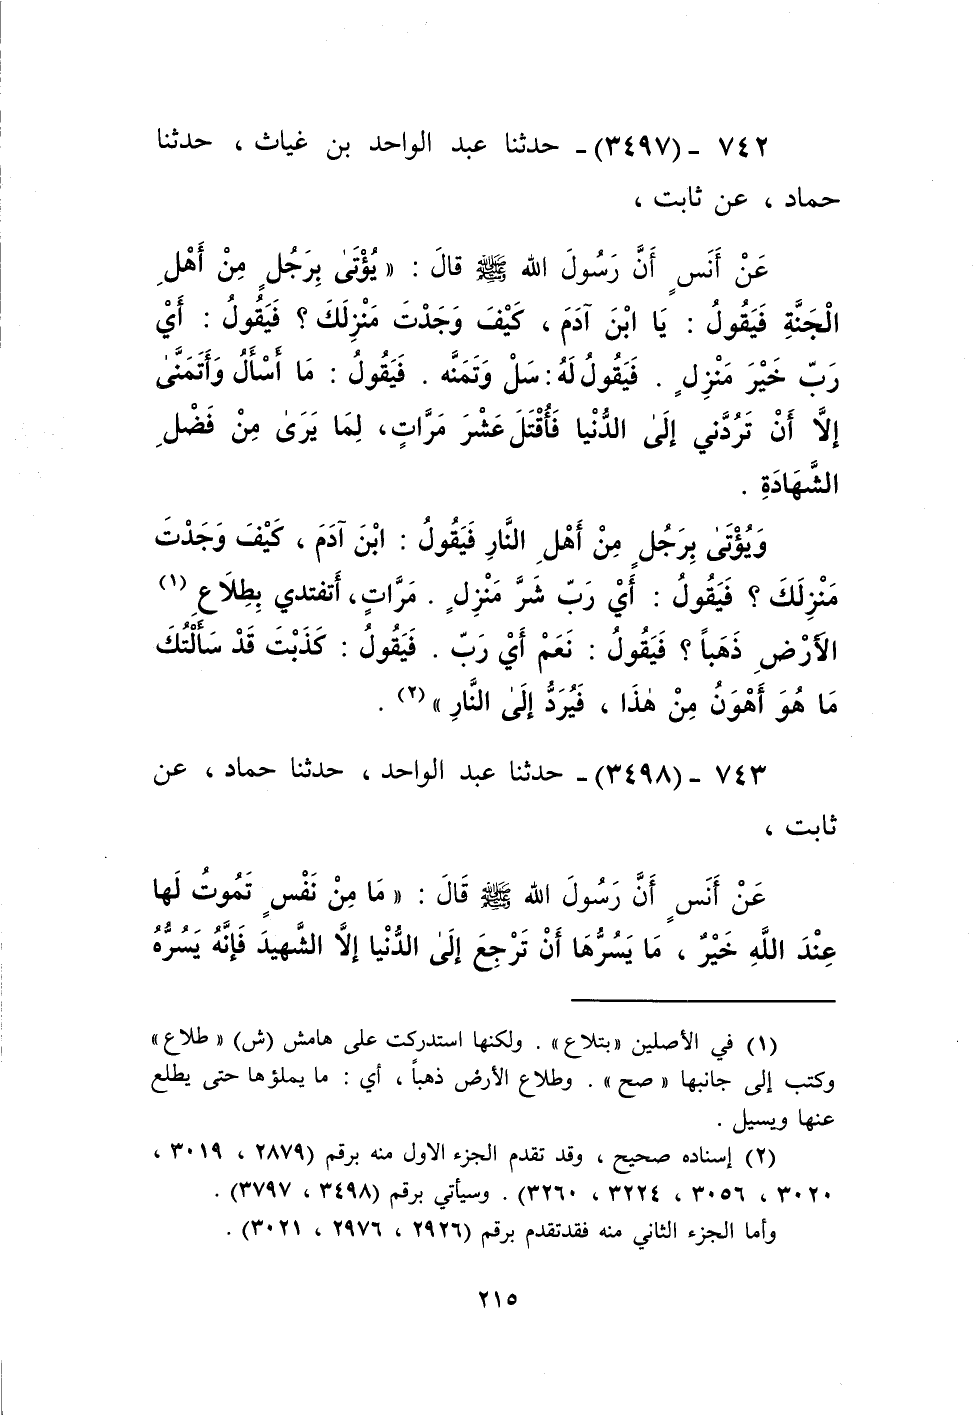 ٧٤٢ - (٣٤٩٧) - حدثنا عبد الواحد بن غياث ، حدثنا
حماد ، عن ثابت ،
عَنْ أَنَسٍ أَنَّ رَسُولَ الله ﷺ قالَ : « يُؤْتَىٰ بِرَجُلٍ مِنْ أَهْلِ
الْجَنَّةِ فَيَقُولُ : يَا ابْنَ آدَمَ ، كَيْفَ وَجَدْتَ مَنْزِلَكَ ؟ فَيَقُولُ : أَيْ
رَبّ خَيْرَ مَنْزِلٍ . فَيَقُولُ لَهُ : سَلْ وَتَمَنَّه . فَيَقُولُ : مَا أَسْأَلُ وَأَتَمَنَّىٰ
إلَّا أَنْ تَرُدَّني إلَىٰ الدُّنْيا فَأُقْتَلَ عَشْرَ مَرَّاتٍ ، لِمَا يَرَىٰ مِنْ فَضْلِ
الشَّهَادَةِ .
وَيُؤْتَىٰ بِرَجُلٍ مِنْ أَهْلِ النَّارِ فَيَقُولُ : ابْنَ آدَمَ ، كَيْفَ وَجَدْتَ
مَنْزِلَكَ ؟ فَيَقُولُ : أَيْ رَبّ شَرَّ مَنْزِلٍ . مَرَّاتٍ ، أَتفتدي بِطِلَاعِ (١)
الأَرْضِ ذَهَباً ؟ فَيَقُولُ : نَعَمْ أَيْ رَبّ . فَيَقُولُ : كَذَبْتَ قَدْ سَأَلْتُكَ
مَا هُوَ أَهْوَنُ مِنْ هٰذَا ، فَيُرَدُّ إلَىٰ النَّارِ » (٢) .
٧٤٣ - (٣٤٩٨) - حدثنا عبد الواحد ، حدثنا حماد ، عن
ثابت ،
عَنْ أَنَسٍ أَنَّ رَسُولَ الله ﷺ قَالَ : « مَا مِنْ نَفْسٍ تَمُوتُ لَها
عِنْدَ اللَّهِ خَيْرٌ ، مَا يَسُرُّهَا أَنْ تَرْجِعَ إلَىٰ الدُّنْيا إلَّا الشَّهيدَ فَإنَّهُ يَسُرُّهُ
(١) في الأصلين « بتلاع » . ولكنها استدركت على هامش (ش) « طلاع »
وكتب إلى جانبها « صح » . وطلاع الأرض ذهباً ، أي : ما يملؤها حتى يطلع
عنها ويسيل .
(٢) إسناده صحيح ، وقد تقدم الجزء الاول منه برقم (٢٨٧٩ ، ٣٠١٩ ،
٣٠٢٠ ، ٣٠٥٦ ، ٣٢٢٤ ، ٣٢٦٠) . وسيأتي برقم (٣٤٩٨ ، ٣٧٩٧) .
وأما الجزء الثاني منه فقدتقدم برقم (٢٩٢٦ ، ٢٩٧٦ ، ٣٠٢١) .
٢١٥